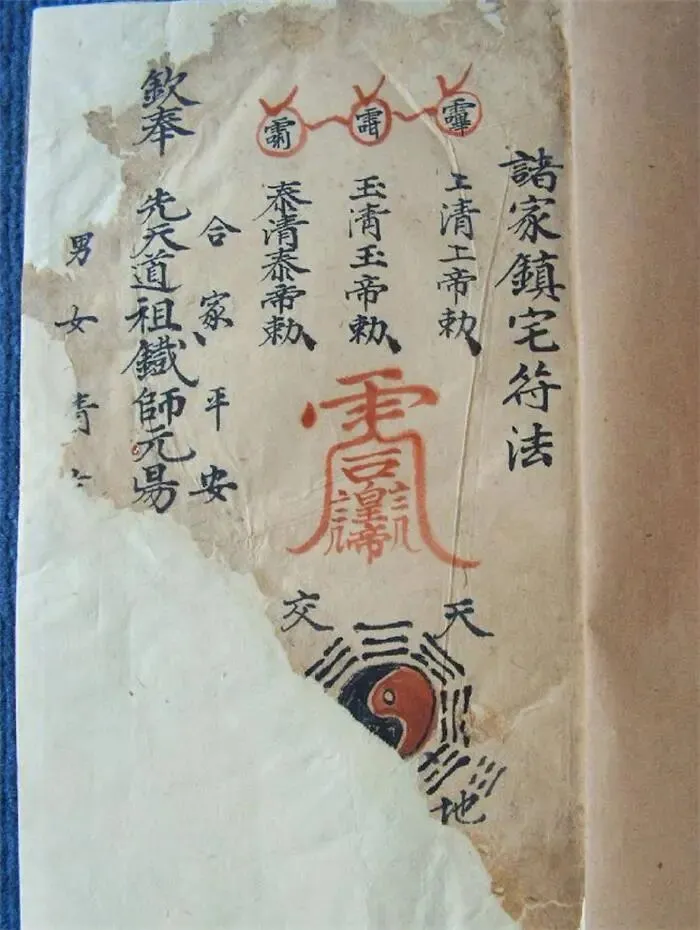 諸家鎮宅符法
上清上帝勅
玉清玉帝勅
泰清泰帝勅
皇帝
天
交
地
合家平安
欽奉
先天道祖鐵師元昜
男女青